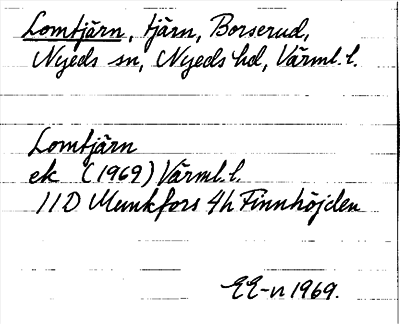 Lomtjärn, tjärn, Borserud,
Nyeds sn, Nyeds hd, Värml. l.
Lomtjärn
ek (1969) Värml. l.
11D Munkfors 4h Finnhöjden
EE-n 1969.